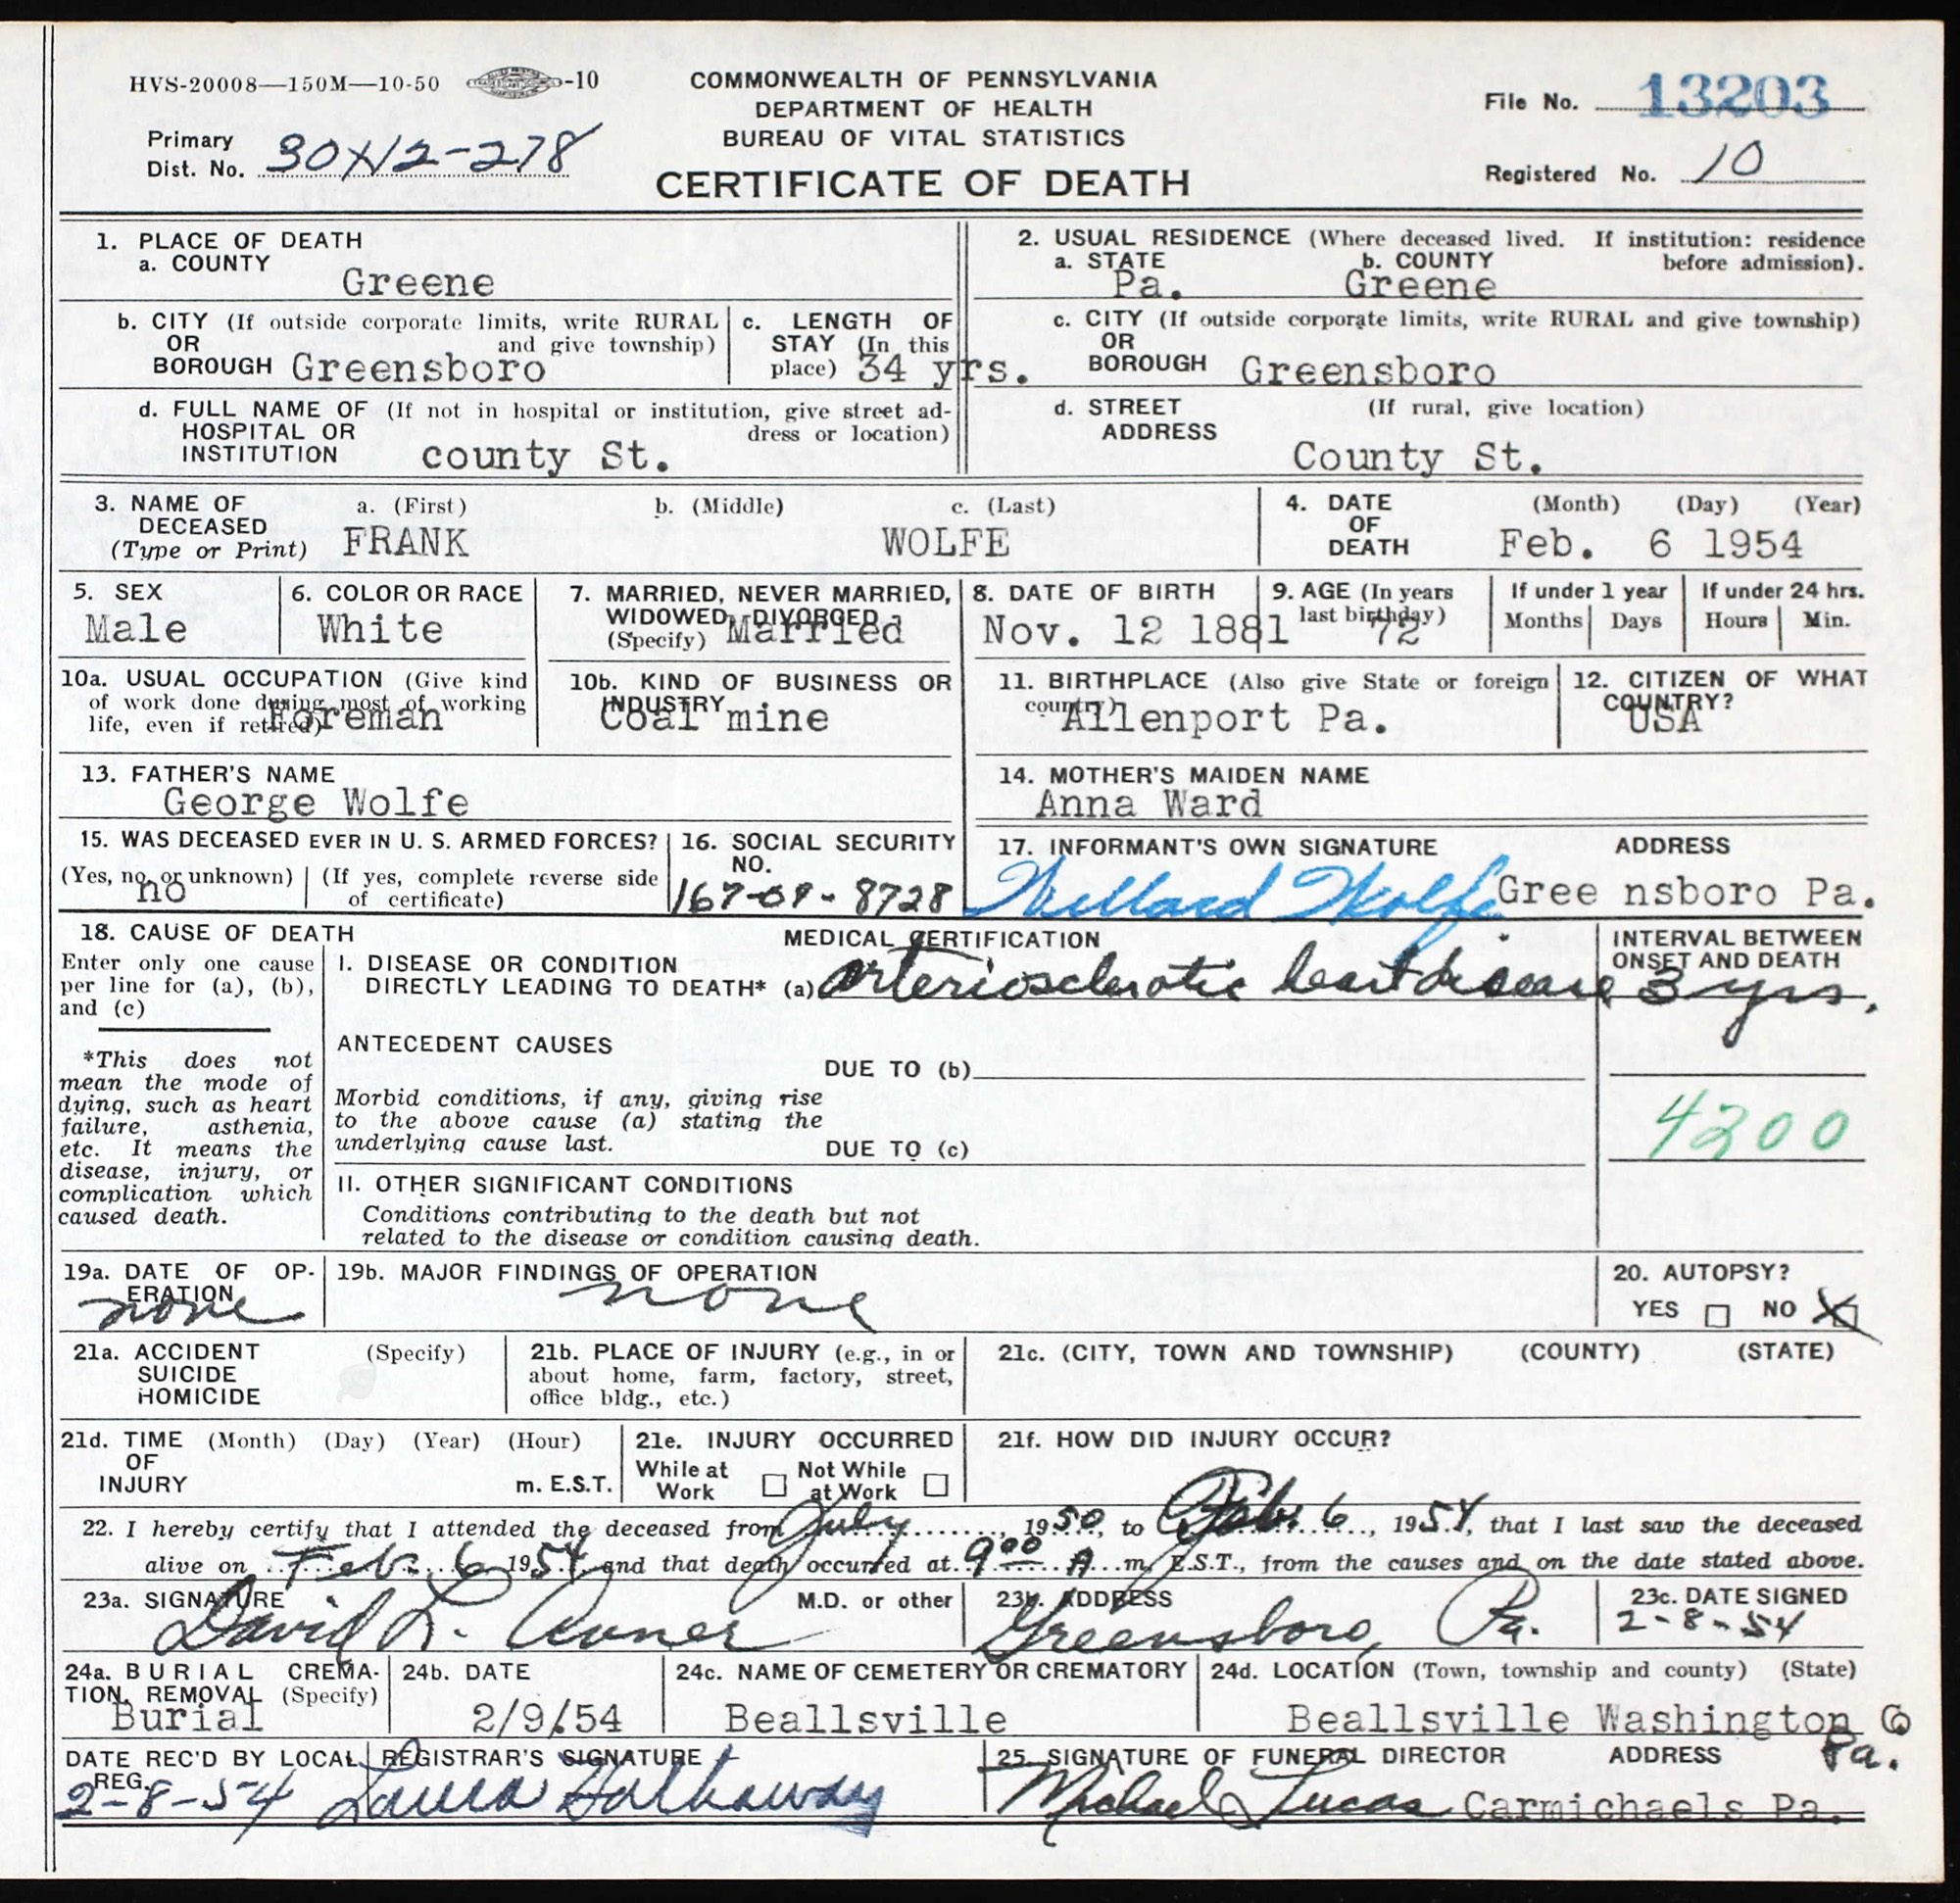 HVS-20008—150M—10-50 -10
COMMONWEALTH OF PENNSYLVANIA
DEPARTMENT OF HEALTH
BUREAU OF VITAL STATISTICS
CERTIFICATE OF DEATH
File No. 13203
Primary
Dist. No. 30X12-278
Registered No. 10
1. PLACE OF DEATH
a. COUNTY
Greene
2. USUAL RESIDENCE (Where deceased lived. If institution: residence
a. STATE b. COUNTY before admission).
Pa. Greene
b. CITY (If outside corporate limits, write RURAL
OR and give township)
BOROUGH Greensboro
c. LENGTH OF
STAY (In this
place) 34 yrs.
c. CITY (If outside corporate limits, write RURAL and give township)
OR
BOROUGH Greensboro
d. FULL NAME OF (If not in hospital or institution, give street ad-
HOSPITAL OR dress or location)
INSTITUTION county St.
d. STREET (If rural, give location)
ADDRESS
County St.
3. NAME OF a. (First) b. (Middle) c. (Last)
DECEASED
(Type or Print) FRANK WOLFE
4. DATE (Month) (Day) (Year)
OF
DEATH Feb. 6 1954
5. SEX
Male
6. COLOR OR RACE
White
7. MARRIED, NEVER MARRIED,
WIDOWED, DIVORCED
(Specify) Married
8. DATE OF BIRTH
Nov. 12 1881
9. AGE (In years
last birthday)
72
If under 1 year
Months Days
If under 24 hrs.
Hours Min.
10a. USUAL OCCUPATION (Give kind
of work done during most of working
life, even if retired) Foreman
10b. KIND OF BUSINESS OR
INDUSTRY
Coal mine
11. BIRTHPLACE (Also give State or foreign
country)
Allenport Pa.
12. CITIZEN OF WHAT
COUNTRY?
USA
13. FATHER'S NAME
George Wolfe
14. MOTHER'S MAIDEN NAME
Anna Ward
15. WAS DECEASED EVER IN U. S. ARMED FORCES?
(Yes, no, or unknown) (If yes, complete reverse side
no of certificate)
16. SOCIAL SECURITY
NO.
167-09-8728
17. INFORMANT'S OWN SIGNATURE ADDRESS
Willard Wolfe Gree nsboro Pa.
18. CAUSE OF DEATH
Enter only one cause
per line for (a), (b),
and (c)
*This does not
mean the mode of
dying, such as heart
failure, asthenia,
etc. It means the
disease, injury, or
complication which
caused death.
MEDICAL CERTIFICATION
I. DISEASE OR CONDITION
DIRECTLY LEADING TO DEATH* (a) arteriosclerotic heart disease
INTERVAL BETWEEN
ONSET AND DEATH
3 yrs.
ANTECEDENT CAUSES
DUE TO (b)
Morbid conditions, if any, giving rise
to the above cause (a) stating the
underlying cause last.
DUE TO (c)
4200
II. OTHER SIGNIFICANT CONDITIONS
Conditions contributing to the death but not
related to the disease or condition causing death.
19a. DATE OF OP-
ERATION
none
19b. MAJOR FINDINGS OF OPERATION
none
20. AUTOPSY?
YES NO X
21a. ACCIDENT (Specify)
SUICIDE
HOMICIDE
21b. PLACE OF INJURY (e.g., in or
about home, farm, factory, street,
office bldg., etc.)
21c. (CITY, TOWN AND TOWNSHIP) (COUNTY) (STATE)
21d. TIME (Month) (Day) (Year) (Hour)
OF
INJURY m. E.S.T.
21e. INJURY OCCURRED
While at Not While
Work at Work
21f. HOW DID INJURY OCCUR?
22. I hereby certify that I attended the deceased from July, 1950, to Feb. 6, 1954, that I last saw the deceased
alive on Feb. 6 1954, and that death occurred at 9:00 A m. E.S.T., from the causes and on the date stated above.
23a. SIGNATURE M.D. or other
David L. Avner
23b. ADDRESS
Greensboro, Pa.
23c. DATE SIGNED
2-8-54
24a. BURIAL CREMA-
TION, REMOVAL (Specify)
Burial
24b. DATE
2/9/54
24c. NAME OF CEMETERY OR CREMATORY
Beallsville
24d. LOCATION (Town, township and county) (State)
Beallsville Washington Co
Pa.
DATE REC'D BY LOCAL
REG.
2-8-54
REGISTRAR'S SIGNATURE
Laura Hathaway
25. SIGNATURE OF FUNERAL DIRECTOR ADDRESS
Michael Lucas Carmichaels Pa.